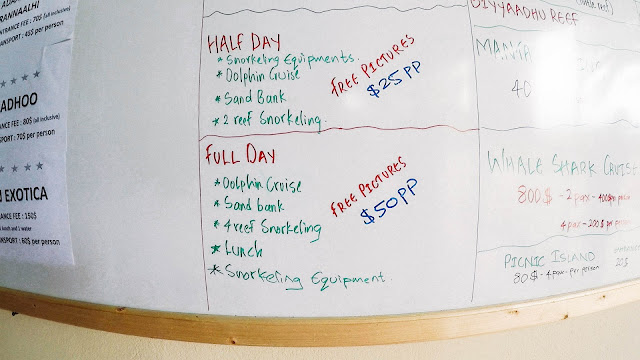 RANNAALHI
ENTRANCE FEE : 70$ (all inclusive)
TRANSPORT : 45$ per person
ADHOO
ANCE FEE : 80$ (all inclusive)
SPORT : 70$ per person
EXOTICA
NTRANCE FEE : 150$
lunch and 1 water
ANSPORT : 60$ per person
HALF DAY
* Snorkeling Equipments.
* Dolphin Cruise
* Sand Bank
* 2 reef Snorkeling.
FREE PICTURES
$25PP
FULL DAY
* Dolphin Cruise
* Sand bank
* 4 reef Snorkeling
* Lunch
* Snorkeling Equipment.
FREE PICTURES
$50PP
REEF
MANTA
40
WHALE SHARK CRUISE
800$ - 2 pax - 400$ per person
4 pax - 200$ per person
PICNIC ISLAND
80$ - 4 pax - per person
20$